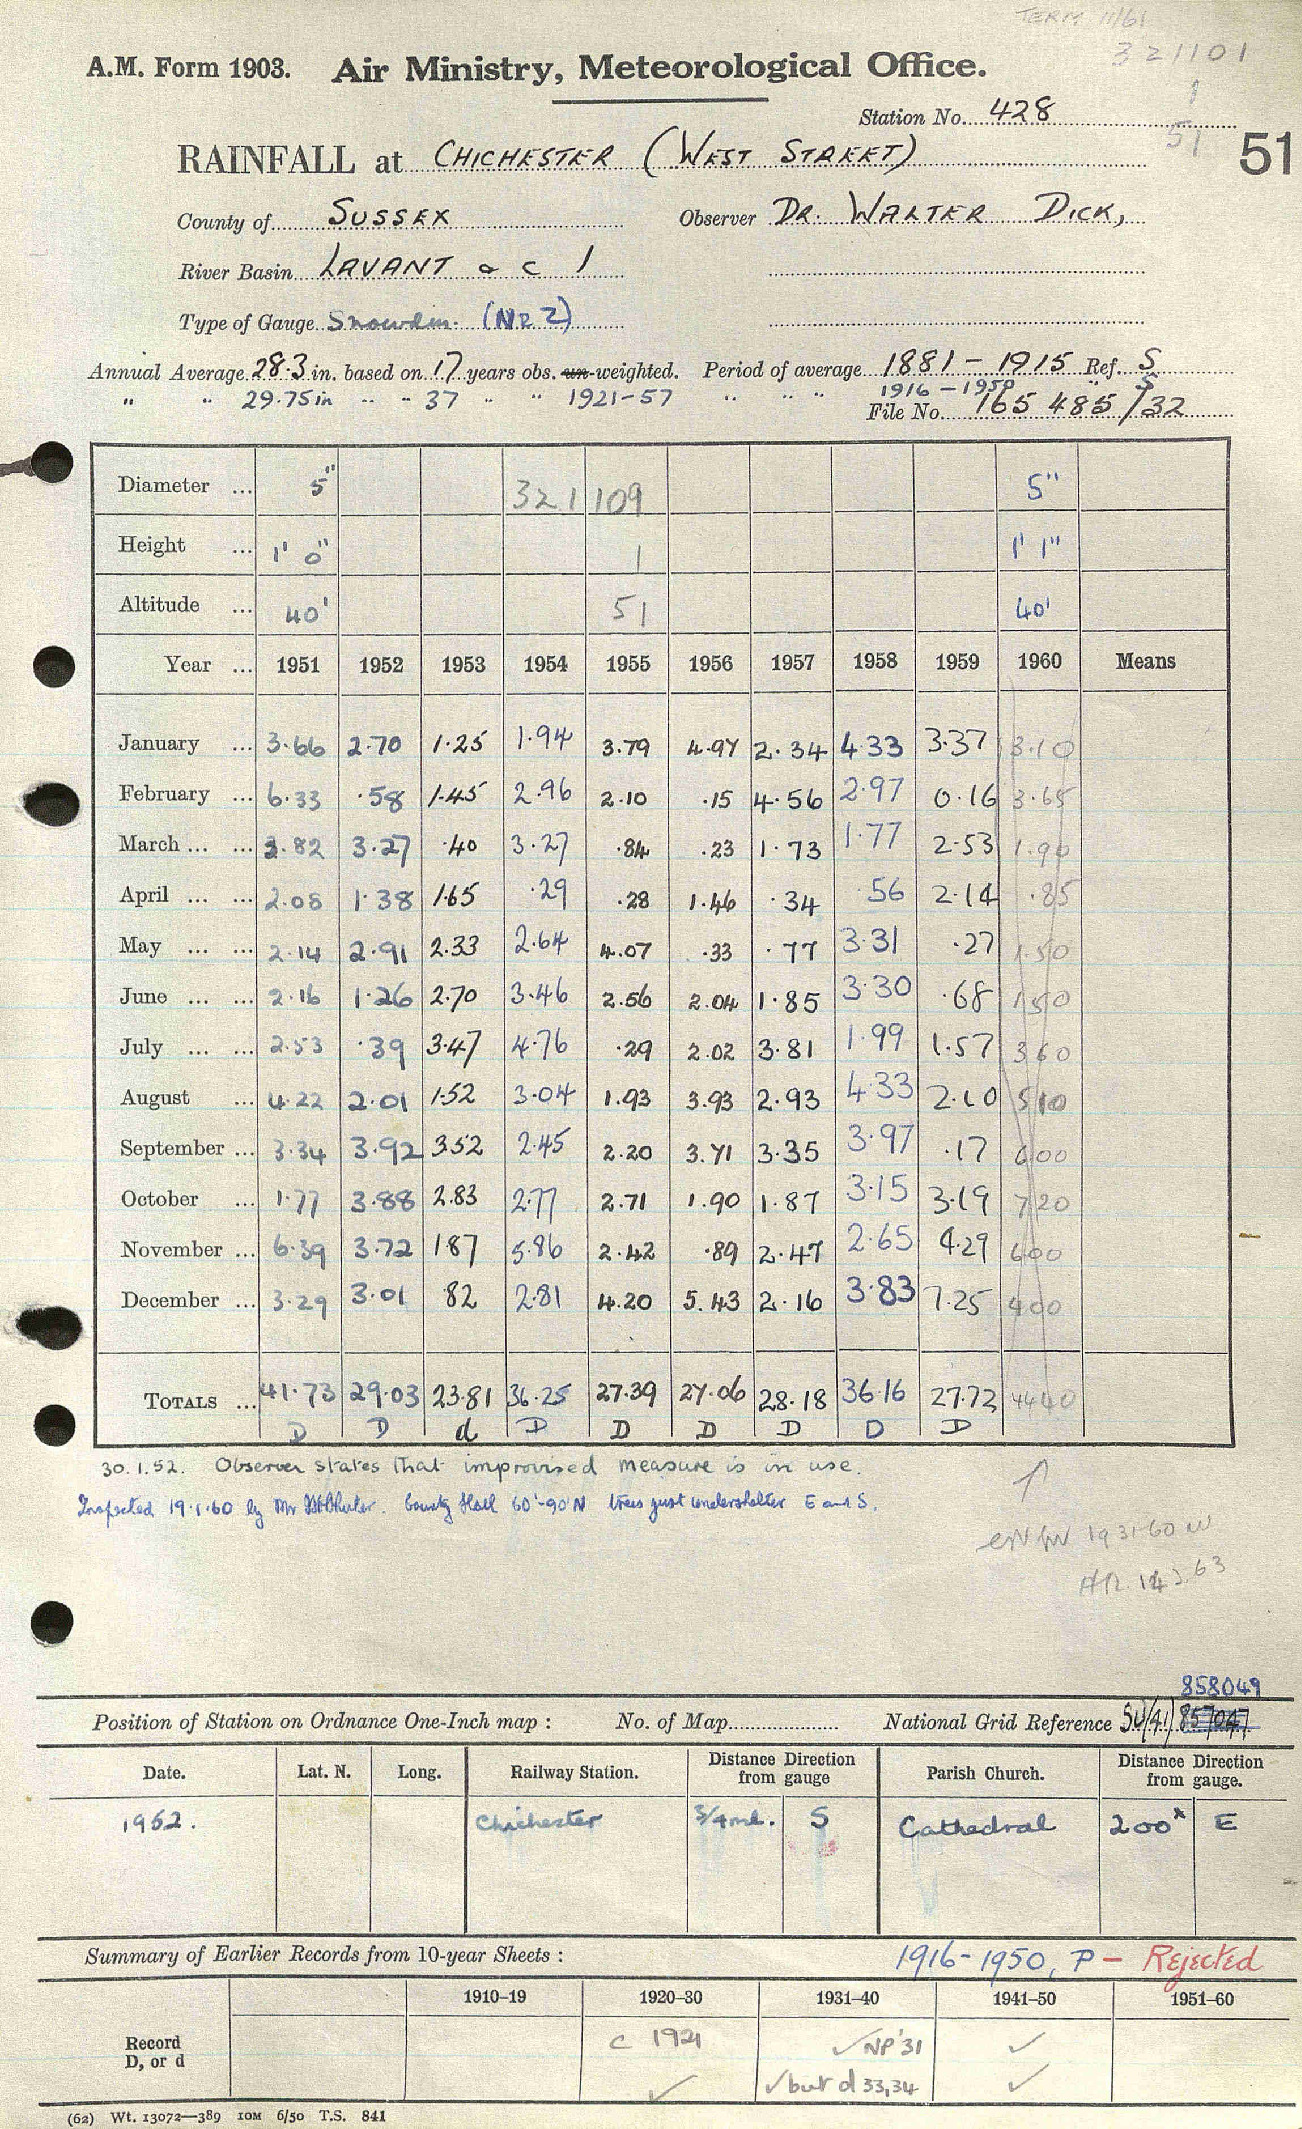 TERM 11/61
321101
1
51
A.M. Form 1903. Air Ministry, Meteorological Office.
Station No. 428
51
RAINFALL at CHICHESTER (WEST STREET)
County of SUSSEX Observer DR. WALTER DICK,
River Basin LAVANT & C 1
Type of Gauge Snowdon. (MR 2)
Annual Average 28.3 in. based on 17 years obs. un-weighted. Period of average 1881 - 1915 Ref. S
" " 29.75in " " 37 " " 1921-57 " " " 1916 - 1950 " S
File No. 165 485 /32
Diameter ... 5" 321109 5"
Height ... 1' 0" 1 1' 1"
Altitude ... 40' 51 40'
Year ... 1951 1952 1953 1954 1955 1956 1957 1958 1959 1960 Means
January ... 3.66 2.70 1.25 1.94 3.79 4.97 2.34 4.33 3.37 3.10
February ... 6.33 .58 1.45 2.96 2.10 .15 4.56 2.97 0.16 3.65
March ... ... 3.82 3.27 .40 3.27 .84 .23 1.73 1.77 2.53 1.90
April ... ... 2.08 1.38 1.65 .29 .28 1.46 .34 .56 2.14 .85
May ... ... 2.14 2.91 2.33 2.64 4.07 .33 .77 3.31 .27 1.50
June ... ... 2.16 1.26 2.70 3.46 2.56 2.04 1.85 3.30 .68 1.50
July ... ... 2.53 .39 3.47 4.76 .29 2.02 3.81 1.99 1.57 3.60
August ... 4.22 2.01 1.52 3.04 1.93 3.93 2.93 4.33 2.10 5.10
September ... 3.34 3.92 3.52 2.45 2.20 3.71 3.35 3.97 .17 6.00
October ... 1.77 3.88 2.83 2.77 2.71 1.90 1.87 3.15 3.19 7.20
November ... 6.39 3.72 1.87 5.86 2.42 .89 2.47 2.65 4.29 6.00
December ... 3.29 3.01 .82 2.81 4.20 5.43 2.16 3.83 7.25 4.00
TOTALS ... 41.73 29.03 23.81 36.25 27.39 27.06 28.18 36.16 27.72 44.40
D D d D D D D D D
30.1.52. Observer states that improvised measure is in use.
Inspected 19.1.60 by Mr County Hall 60'-90'N trees just undershelter E and S.
1931-60
858049
Position of Station on Ordnance One-Inch map : No. of Map National Grid Reference SU(41) 857047
Date. Lat. N. Long. Railway Station. Distance Direction from gauge Parish Church. Distance Direction from gauge.
1952. Chichester 3/4 ml. S Cathedral 200x E
Summary of Earlier Records from 10-year Sheets : 1916-1950, P - Rejected
1910–19 1920–30 1931–40 1941–50 1951–60
Record D, or d c 1921 ✓ NP'31 ✓
✓ ✓ but d 33,34 ✓
(62) Wt. 13072—389 10M 6/50 T.S. 841